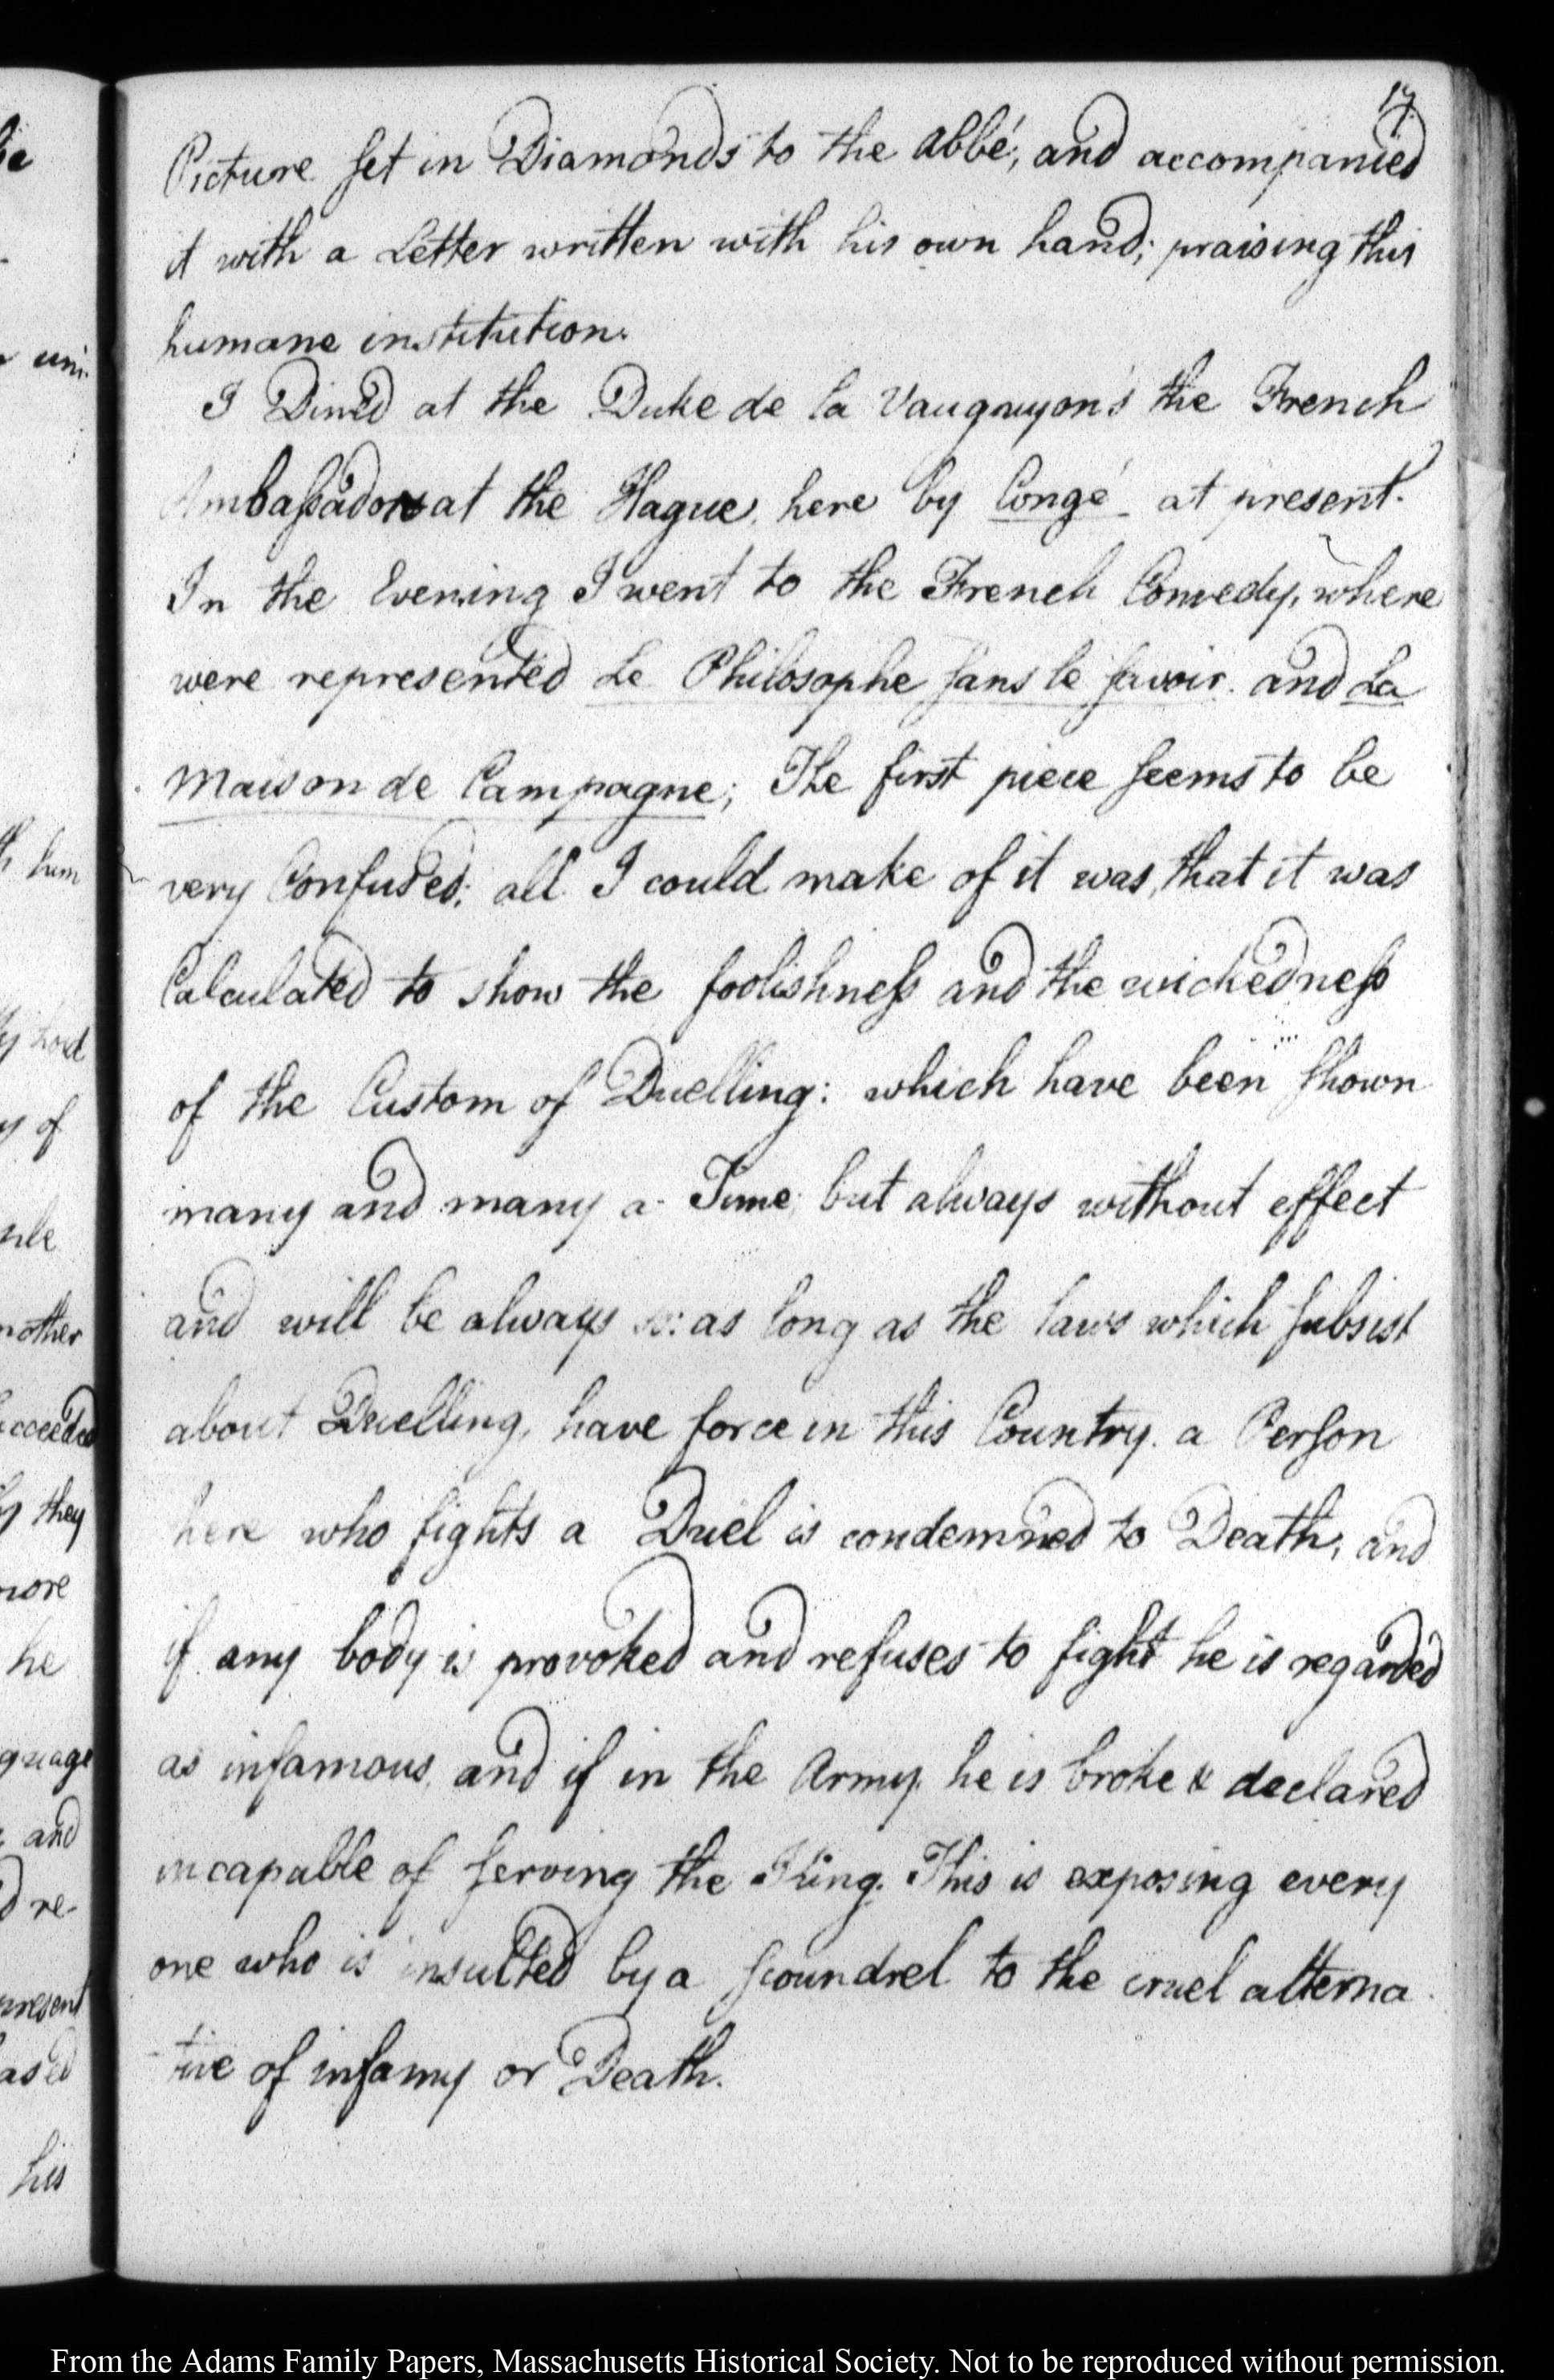 17
Picture set in Diamonds to the abbé, and accompanied
it with a Letter written with his own hand; praising this
humane institution.
I Dined at the Duke de la Vauguyon's the French
Ambassador at the Hague, here by Congé at present.
In the Evening I went to the French Comedy, where
were represented Le Philosophe sans le savoir. and La
Maison de Campagne; The first piece seems to be
very Confused: all I could make of it was, that it was
Calculated to show the foolishness and the wickedness
of the Custom of Duelling: which have been shown
many and many a Time, but always without effect
and will be always so: as long as the laws which subsist
about Duelling, have force in this Country. a Person
here who fights a Duel is condemned to Death, and
if any body is provoked and refuses to fight he is regarded
as infamous, and if in the Army. he is broke & declared
incapable of serving the King. This is exposing every
one who is insulted by a scoundrel to the cruel alterna
-tive of infamy or Death.
uni-
hum
of
mother
they
more
he
and
re-
present
his
From the Adams Family Papers, Massachusetts Historical Society. Not to be reproduced without permission.